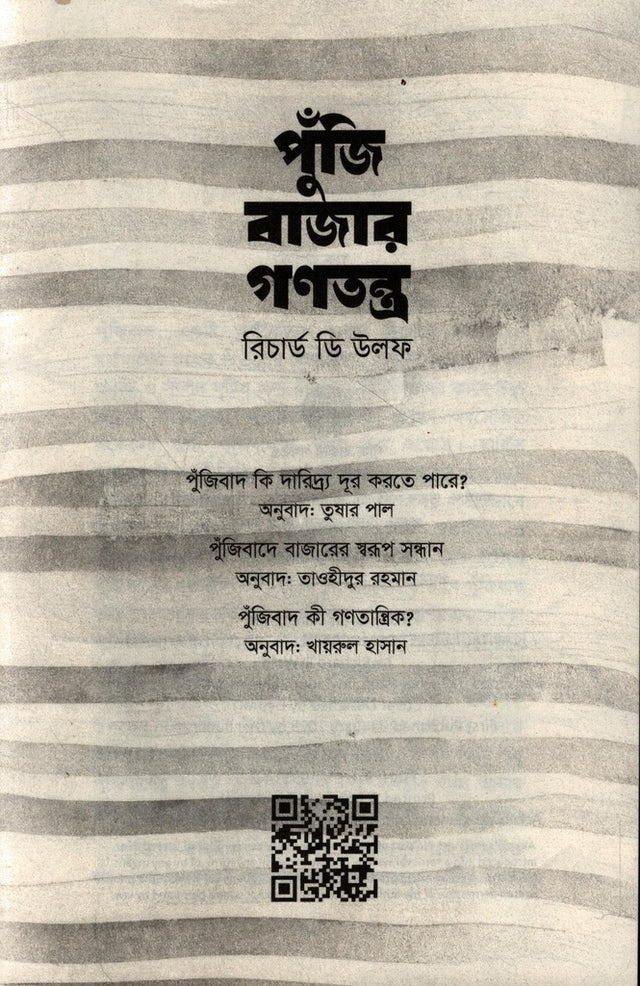 পুঁজি
বাজার
গণতন্ত্র
রিচার্ড ডি উলফ
পুঁজিবাদ কি দারিদ্র্য দূর করতে পারে?
অনুবাদ: তুষার পাল
পুঁজিবাদে বাজারের স্বরূপ সন্ধান
অনুবাদ: তাওহীদুর রহমান
পুঁজিবাদ কী গণতান্ত্রিক?
অনুবাদ: খায়রুল হাসান